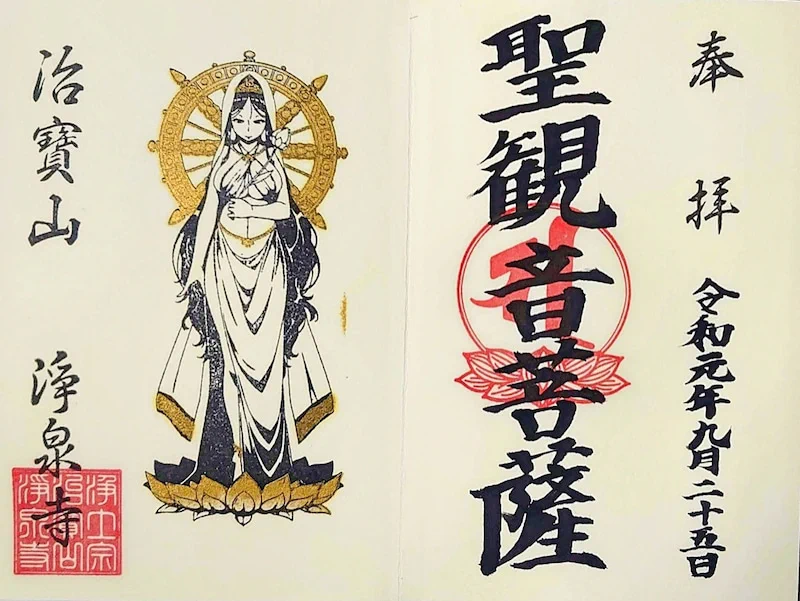 奉拝
令和元年九月二十五日
聖観音菩薩
治寶山 淨泉寺
淨土宗
治寶山
淨泉寺